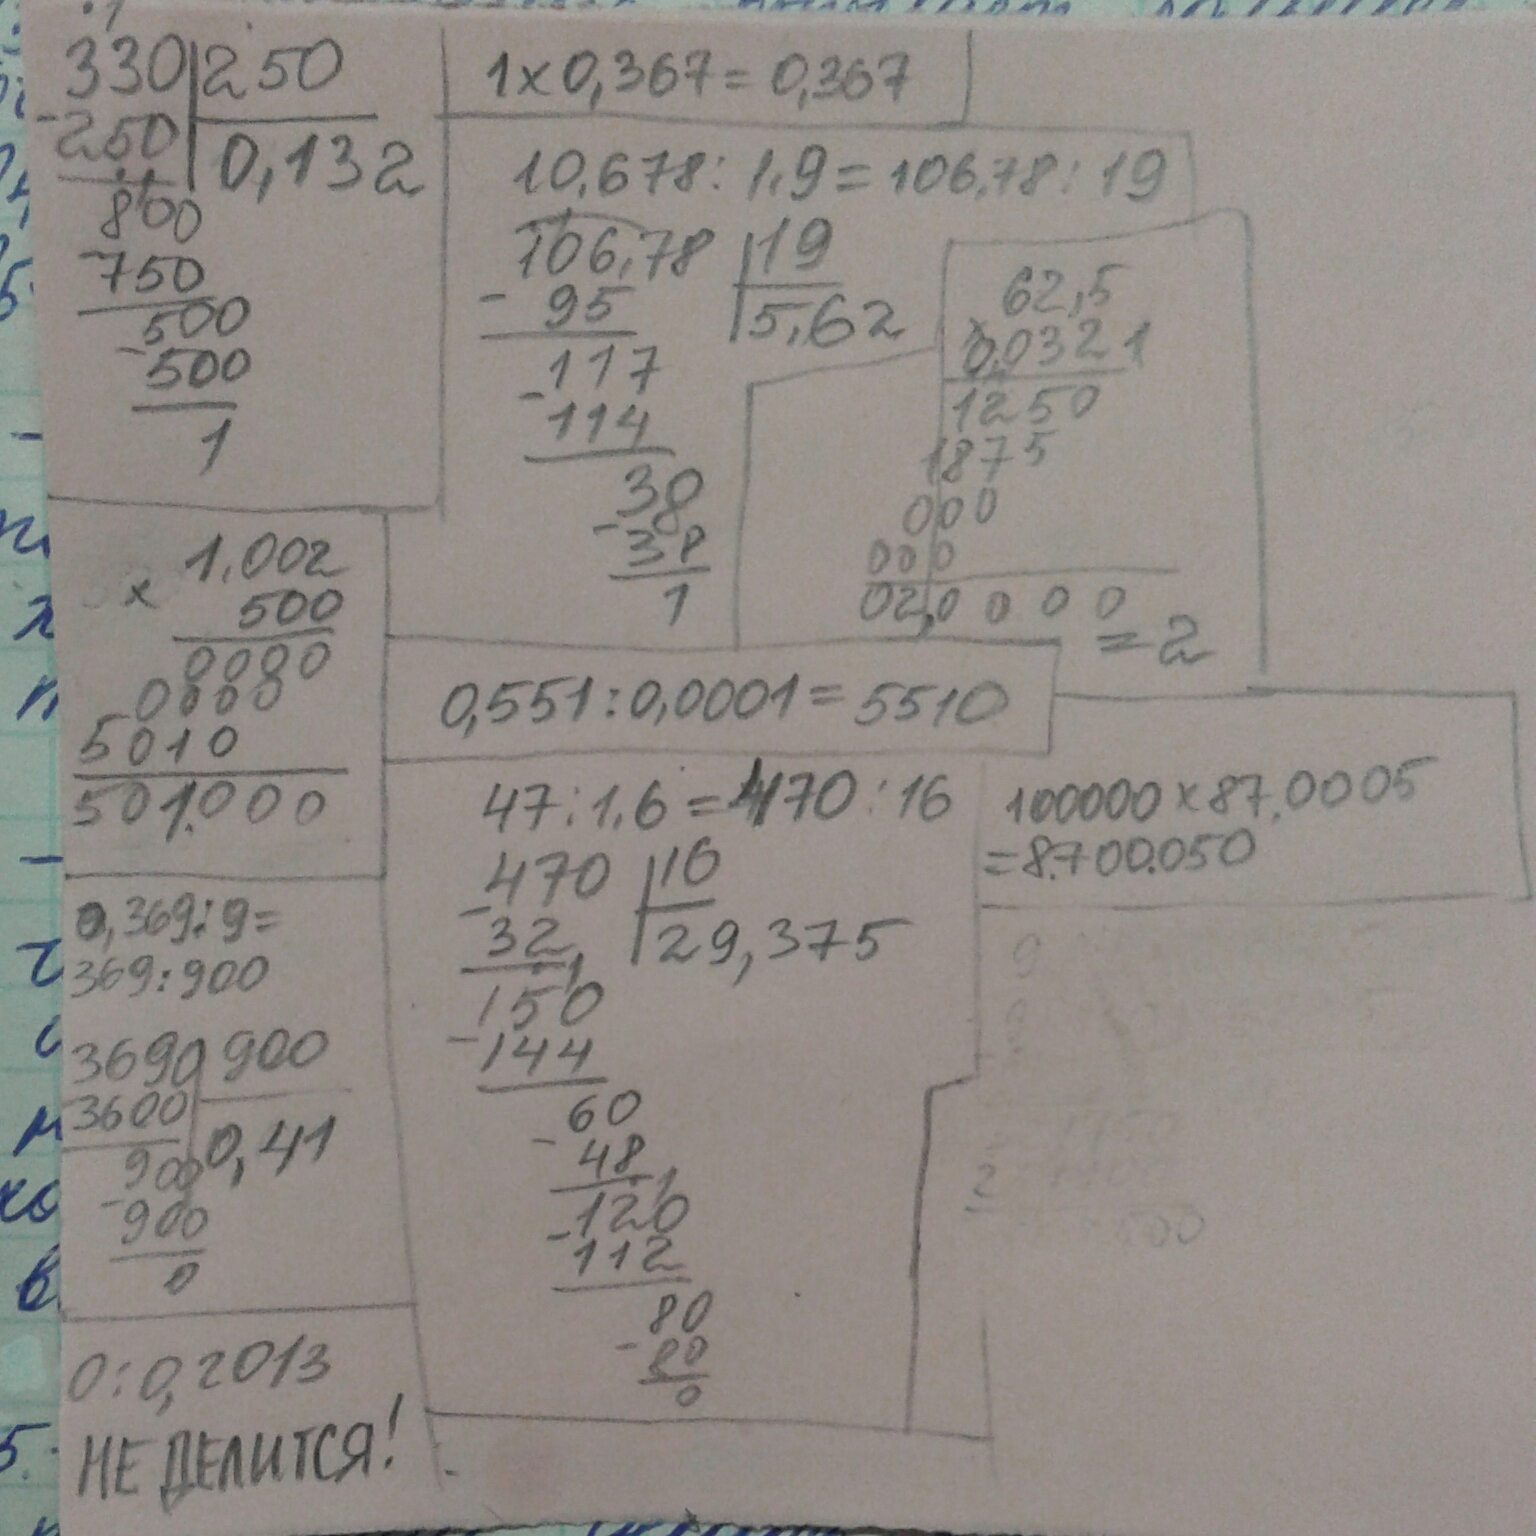 330 250
-250 0,132
800
-750
500
-500
1
1x0,367=0,367
10,678:1,9=106,78:19
106,78 19
- 95 5,62
117
-114
38
-38
1
62,5
x0,0321
1250
1875
000
000
02,0000
=2
1,002
x 500
0000
0000
5010
501,000
0,551:0,0001=5510
47:1,6=470:16
-470 16
32 29,375
150
-144
60
-48
120
-112
80
-80
0
100000x87,0005
=8.700.050
0,369:9=
369:900
3690 900
3600 0,41
900
-900
0
0:0,2013
НЕ ДЕЛИТСЯ!